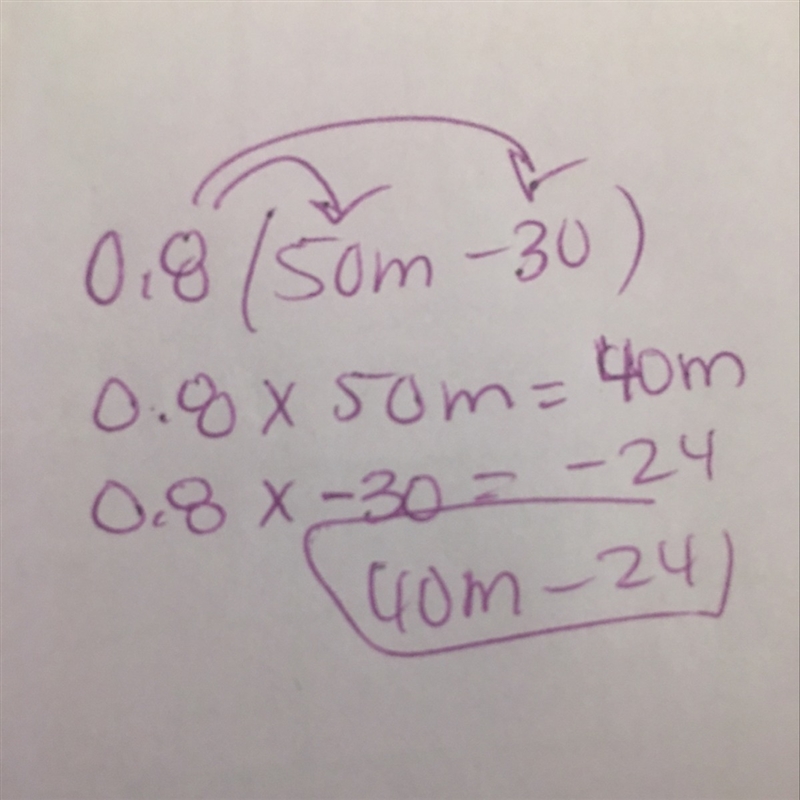 0.8(50m -30)
0.8 x 50m = 40m
0.8 x -30 = -24
40m - 24